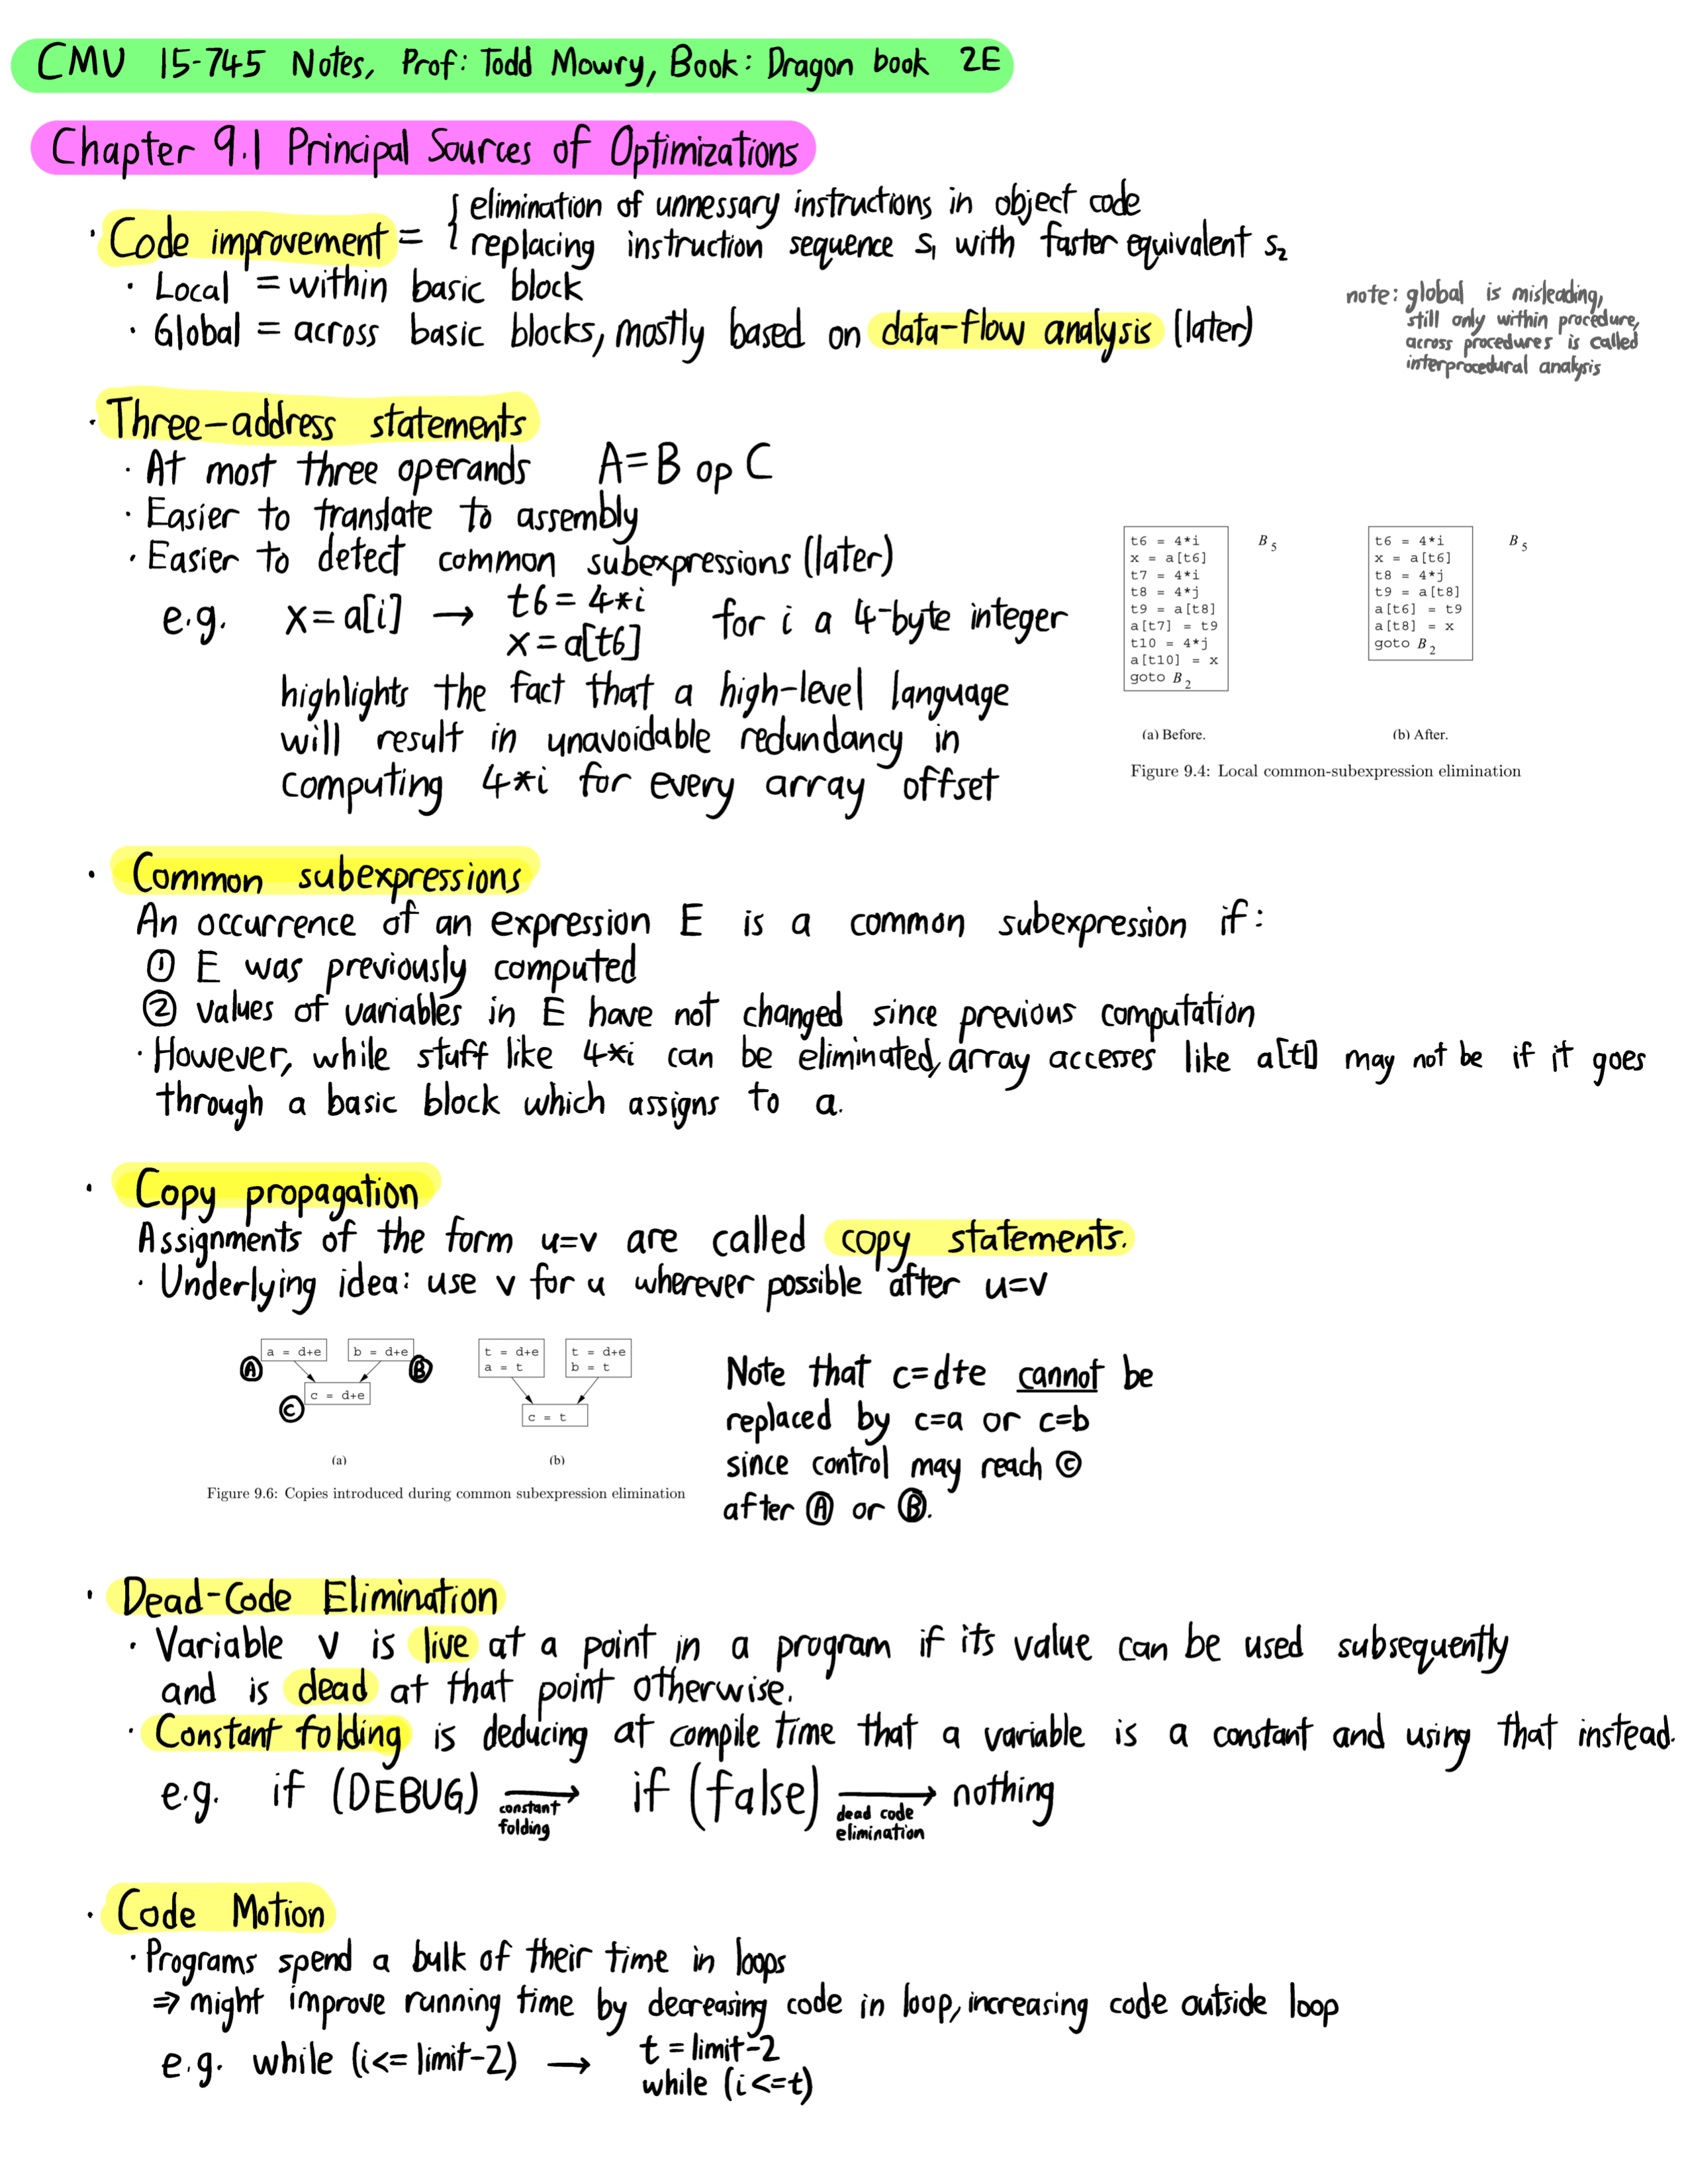 CMU 15-745 Notes, Prof: Todd Mowry, Book: Dragon book 2E
Chapter 9.1 Principal Sources of Optimizations
· Code improvement = { elimination of unnessary instructions in object code
replacing instruction sequence s₁ with faster equivalent s₂
· Local = within basic block
· Global = across basic blocks, mostly based on data-flow analysis (later)
note: global is misleading,
still only within procedure,
across procedures is called
interprocedural analysis
· Three-address statements
· At most three operands A=B op C
· Easier to translate to assembly
· Easier to detect common subexpressions (later)
e.g. x=a[i] → t6=4*i
x=a[t6]
for i a 4-byte integer
highlights the fact that a high-level language
will result in unavoidable redundancy in
computing 4*i for every array offset
t6 = 4*i
x = a[t6]
t7 = 4*i
t8 = 4*j
t9 = a[t8]
a[t7] = t9
t10 = 4*j
a[t10] = x
goto B₂
B₅
(a) Before.
t6 = 4*i
x = a[t6]
t8 = 4*j
t9 = a[t8]
a[t6] = t9
a[t8] = x
goto B₂
B₅
(b) After.
Figure 9.4: Local common-subexpression elimination
· Common subexpressions
An occurrence of an expression E is a common subexpression if:
① E was previously computed
② values of variables in E have not changed since previous computation
· However, while stuff like 4*i can be eliminated, array accesses like a[t1] may not be if it goes
through a basic block which assigns to a.
· Copy propagation
Assignments of the form u=v are called copy statements.
· Underlying idea: use v for u wherever possible after u=v
Ⓐ a = d+e
b = d+e Ⓑ
Ⓒ c = d+e
(a)
t = d+e
a = t
t = d+e
b = t
c = t
(b)
Figure 9.6: Copies introduced during common subexpression elimination
Note that c=d+e cannot be
replaced by c=a or c=b
since control may reach Ⓒ
after Ⓐ or Ⓑ.
· Dead-Code Elimination
· Variable v is live at a point in a program if its value can be used subsequently
and is dead at that point otherwise.
· Constant folding is deducing at compile time that a variable is a constant and using that instead.
e.g. if (DEBUG) → if (false) → nothing
constant
folding
dead code
elimination
· Code Motion
· Programs spend a bulk of their time in loops
⇒ might improve running time by decreasing code in loop, increasing code outside loop
e.g. while (i<= limit-2) → t = limit-2
while (i<=t)